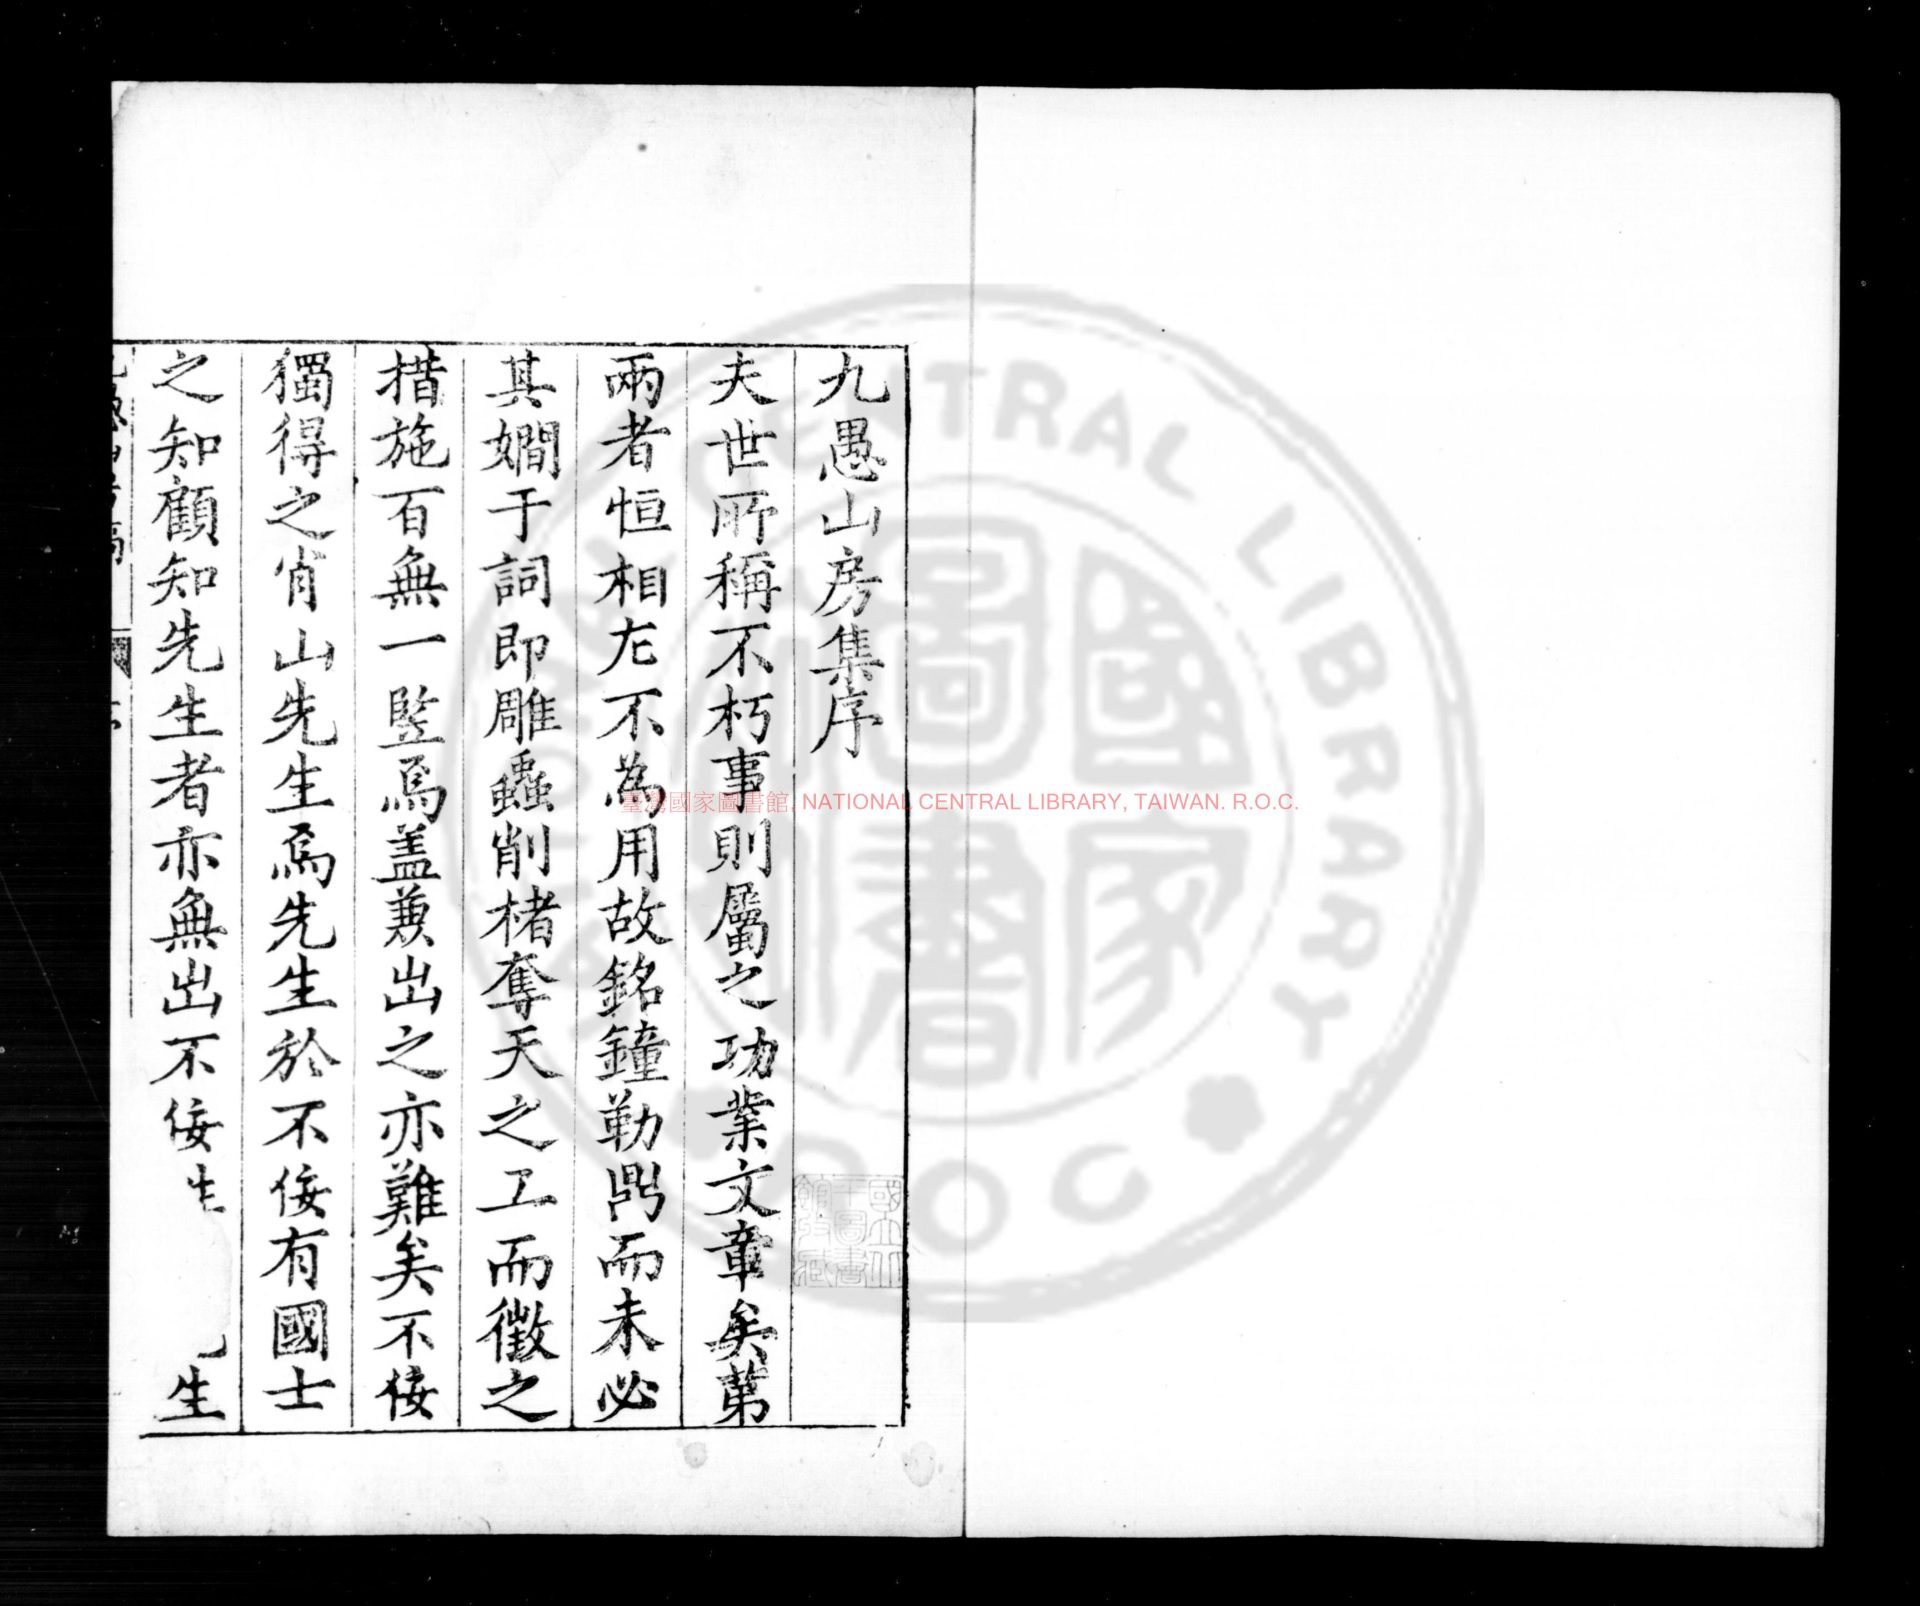 九愚山房集序
夫世所稱不朽事則屬之功業文章矣第
兩者恒相左不為用故銘鐘勒鼎而未必
其嫺于詞即雕蟲削楮奪天之工而徵之
措施百無一竪焉盖蒹出之亦難矣不佞
獨得之肖山先生焉先生於不佞有國士
之知顧知先生者亦無出不佞生
生
臺灣國家圖書館, NATIONAL CENTRAL LIBRARY, TAIWAN. R.O.C.
國家圖書
CENTRAL LIBRARY
ROC